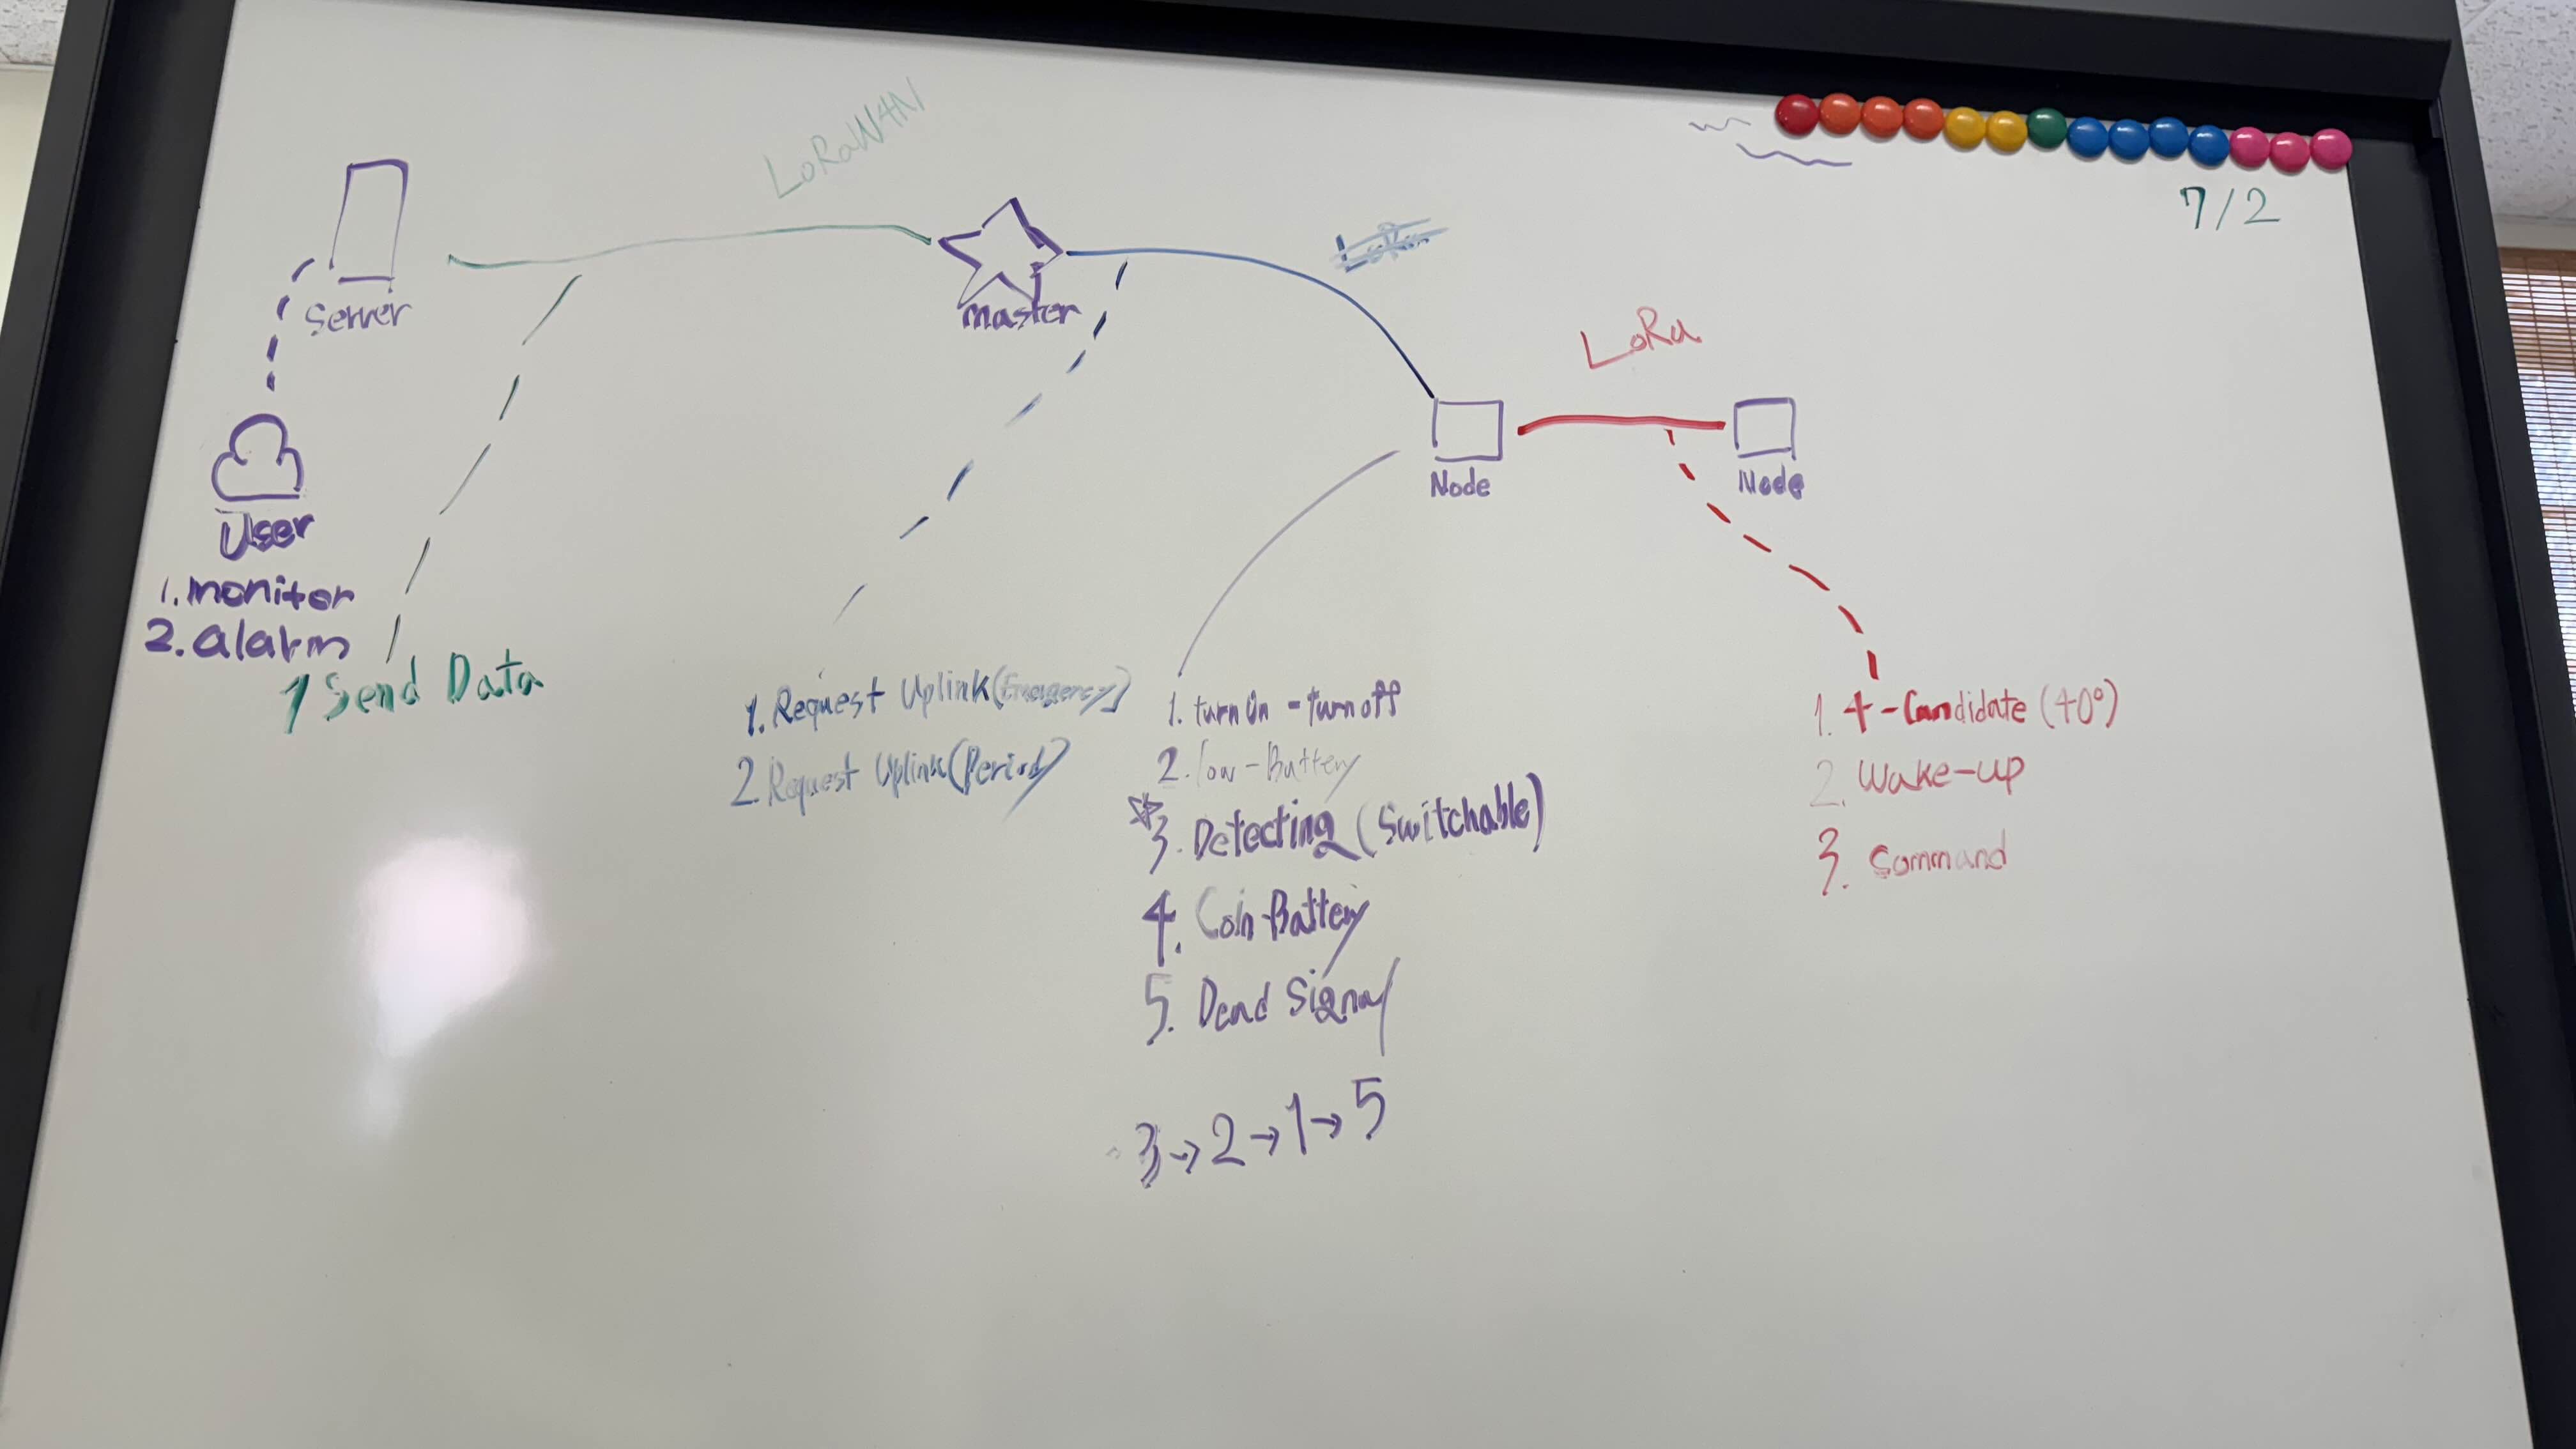 LoRaWAN
7/2
Server
Master
LoRa
Node
Node
User
1. moniter
2. alarm
1 Send Data
1. Request Uplink (Emergency)
2. Request Uplink (Period)
1. turn on - turn off
2. low-Battery
3. Detecting (Switchable)
4. Coin Battery
5. Dead Signal
3→2→1→5
1. 4-Candidate (40°)
2. Wake-up
3. Command